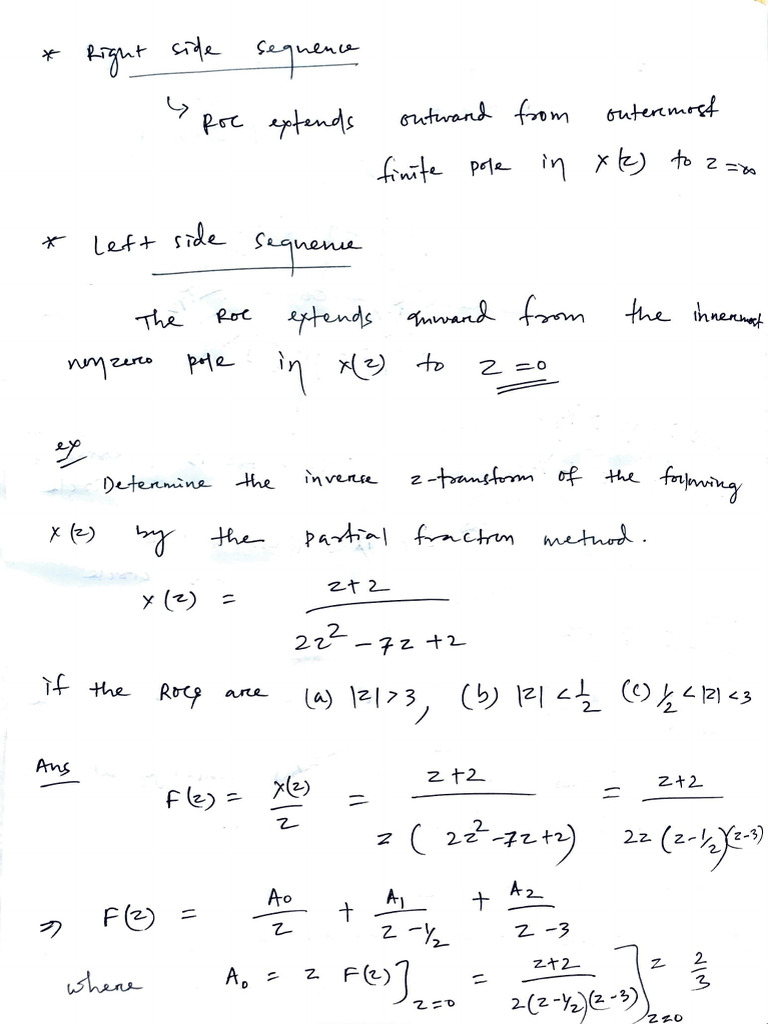 * Right side sequence
↳ ROC extends outward from outermost
finite pole in X(z) to z=∞
* Left side sequence
The ROC extends inward from the innermost
nonzero pole in X(z) to z=0
ex
Determine the inverse z-transform of the following
X(z) by the partial fraction method.
X(z) = (z+2)/(2z²-7z+2)
if the ROCs are (a) |z|>3, (b) |z|<1/2 (c) 1/2<|z|<3
Ans
F(z) = X(z)/z = (z+2)/(z(2z²-7z+2)) = (z+2)/(2z(z-1/2)(z-3))
⇒ F(z) = A0/z + A1/(z-1/2) + A2/(z-3)
where A0 = z F(z)]z=0 = (z+2)/(2(z-1/2)(z-3))]z=0 = 2/3